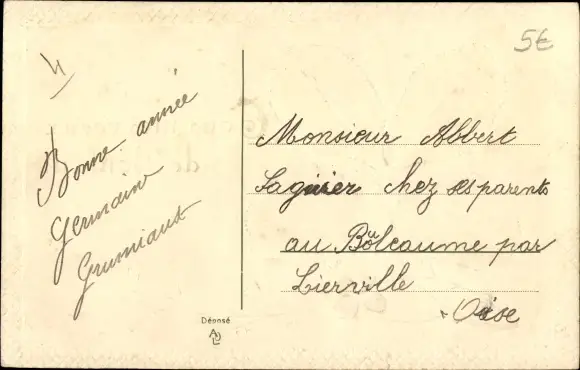 5€
4
Bonne année
Germaine
Grumiaux
Monsieur Albert
Saguier chez ses parents
au Boûleaume par
Lierville
Oise
Déposé